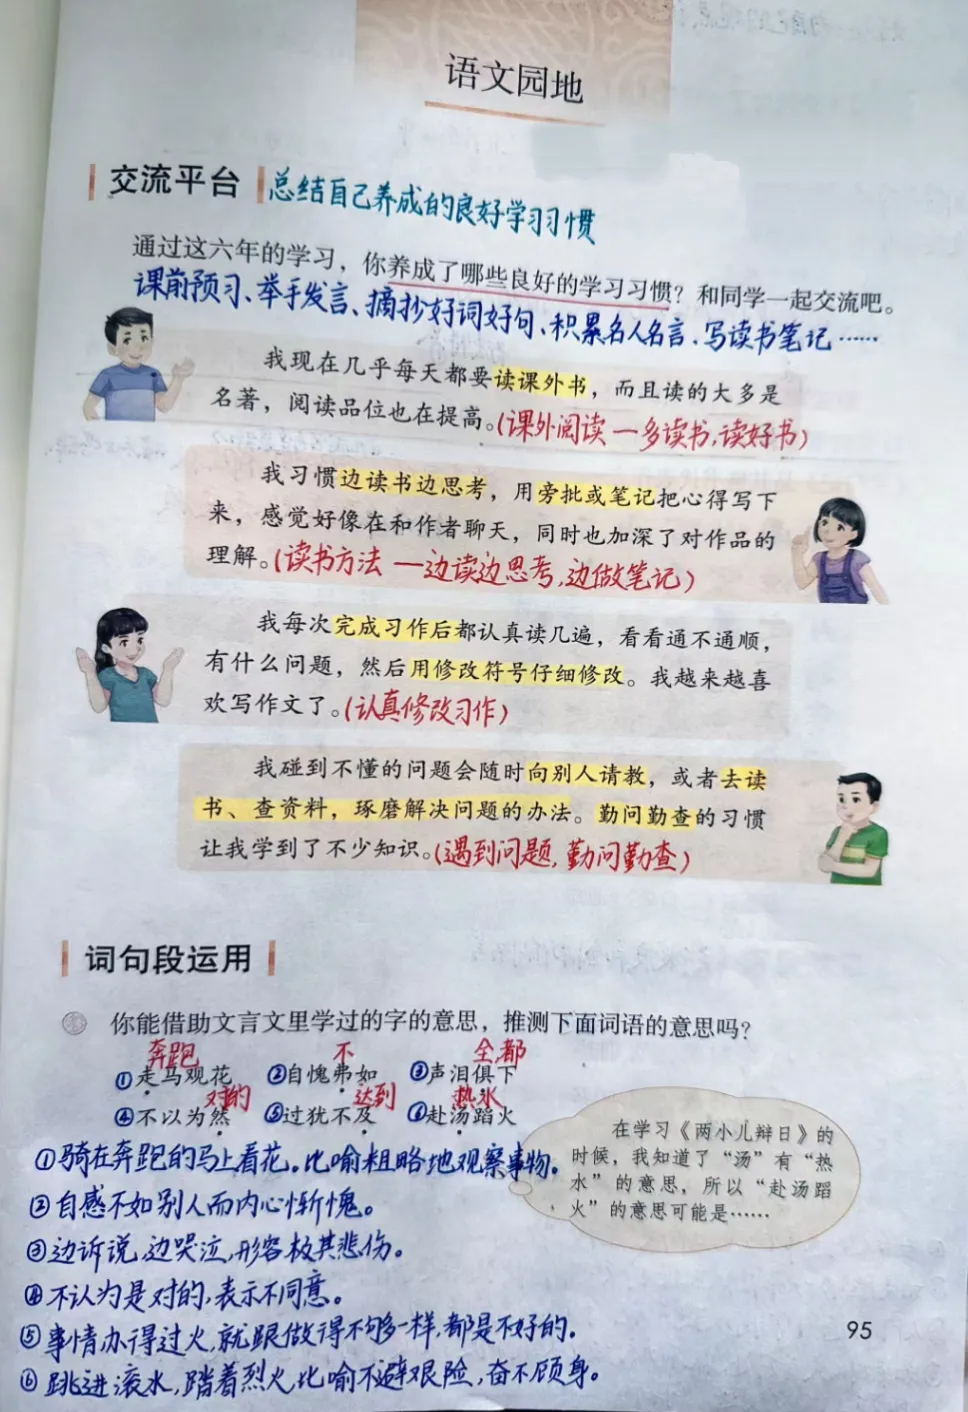 语文园地
交流平台 总结自己养成的良好学习习惯
通过这六年的学习，你养成了哪些良好的学习习惯？和同学一起交流吧。
课前预习、举手发言、摘抄好词好句、积累名人名言、写读书笔记……
我现在几乎每天都要读课外书，而且读的大多是
名著，阅读品位也在提高。(课外阅读—多读书,读好书)
我习惯边读书边思考，用旁批或笔记把心得写下
来，感觉好像在和作者聊天，同时也加深了对作品的
理解。(读书方法—边读边思考,边做笔记)
我每次完成习作后都认真读几遍，看看通不通顺，
有什么问题，然后用修改符号仔细修改。我越来越喜
欢写作文了。(认真修改习作)
我碰到不懂的问题会随时向别人请教，或者去读
书、查资料，琢磨解决问题的办法。勤问勤查的习惯
让我学到了不少知识。(遇到问题,勤问勤查)
词句段运用
你能借助文言文里学过的字的意思，推测下面词语的意思吗？
奔跑 不 全,都
①走马观花 ②自愧弗如 ③声泪俱下
对的 达到 热水
④不以为然 ⑤过犹不及 ⑥赴汤蹈火
在学习《两小儿辩日》的
时候，我知道了“汤”有“热
水”的意思，所以“赴汤蹈
火”的意思可能是……
①骑在奔跑的马上看花。比喻粗略地观察事物。
②自感不如别人而内心惭愧。
③边诉说,边哭泣,形容极其悲伤。
④不认为是对的,表示不同意。
⑤事情办得过火,就跟做得不够一样,都是不好的.
⑥跳进滚水,踏着烈火,比喻不避艰险,奋不顾身。
95